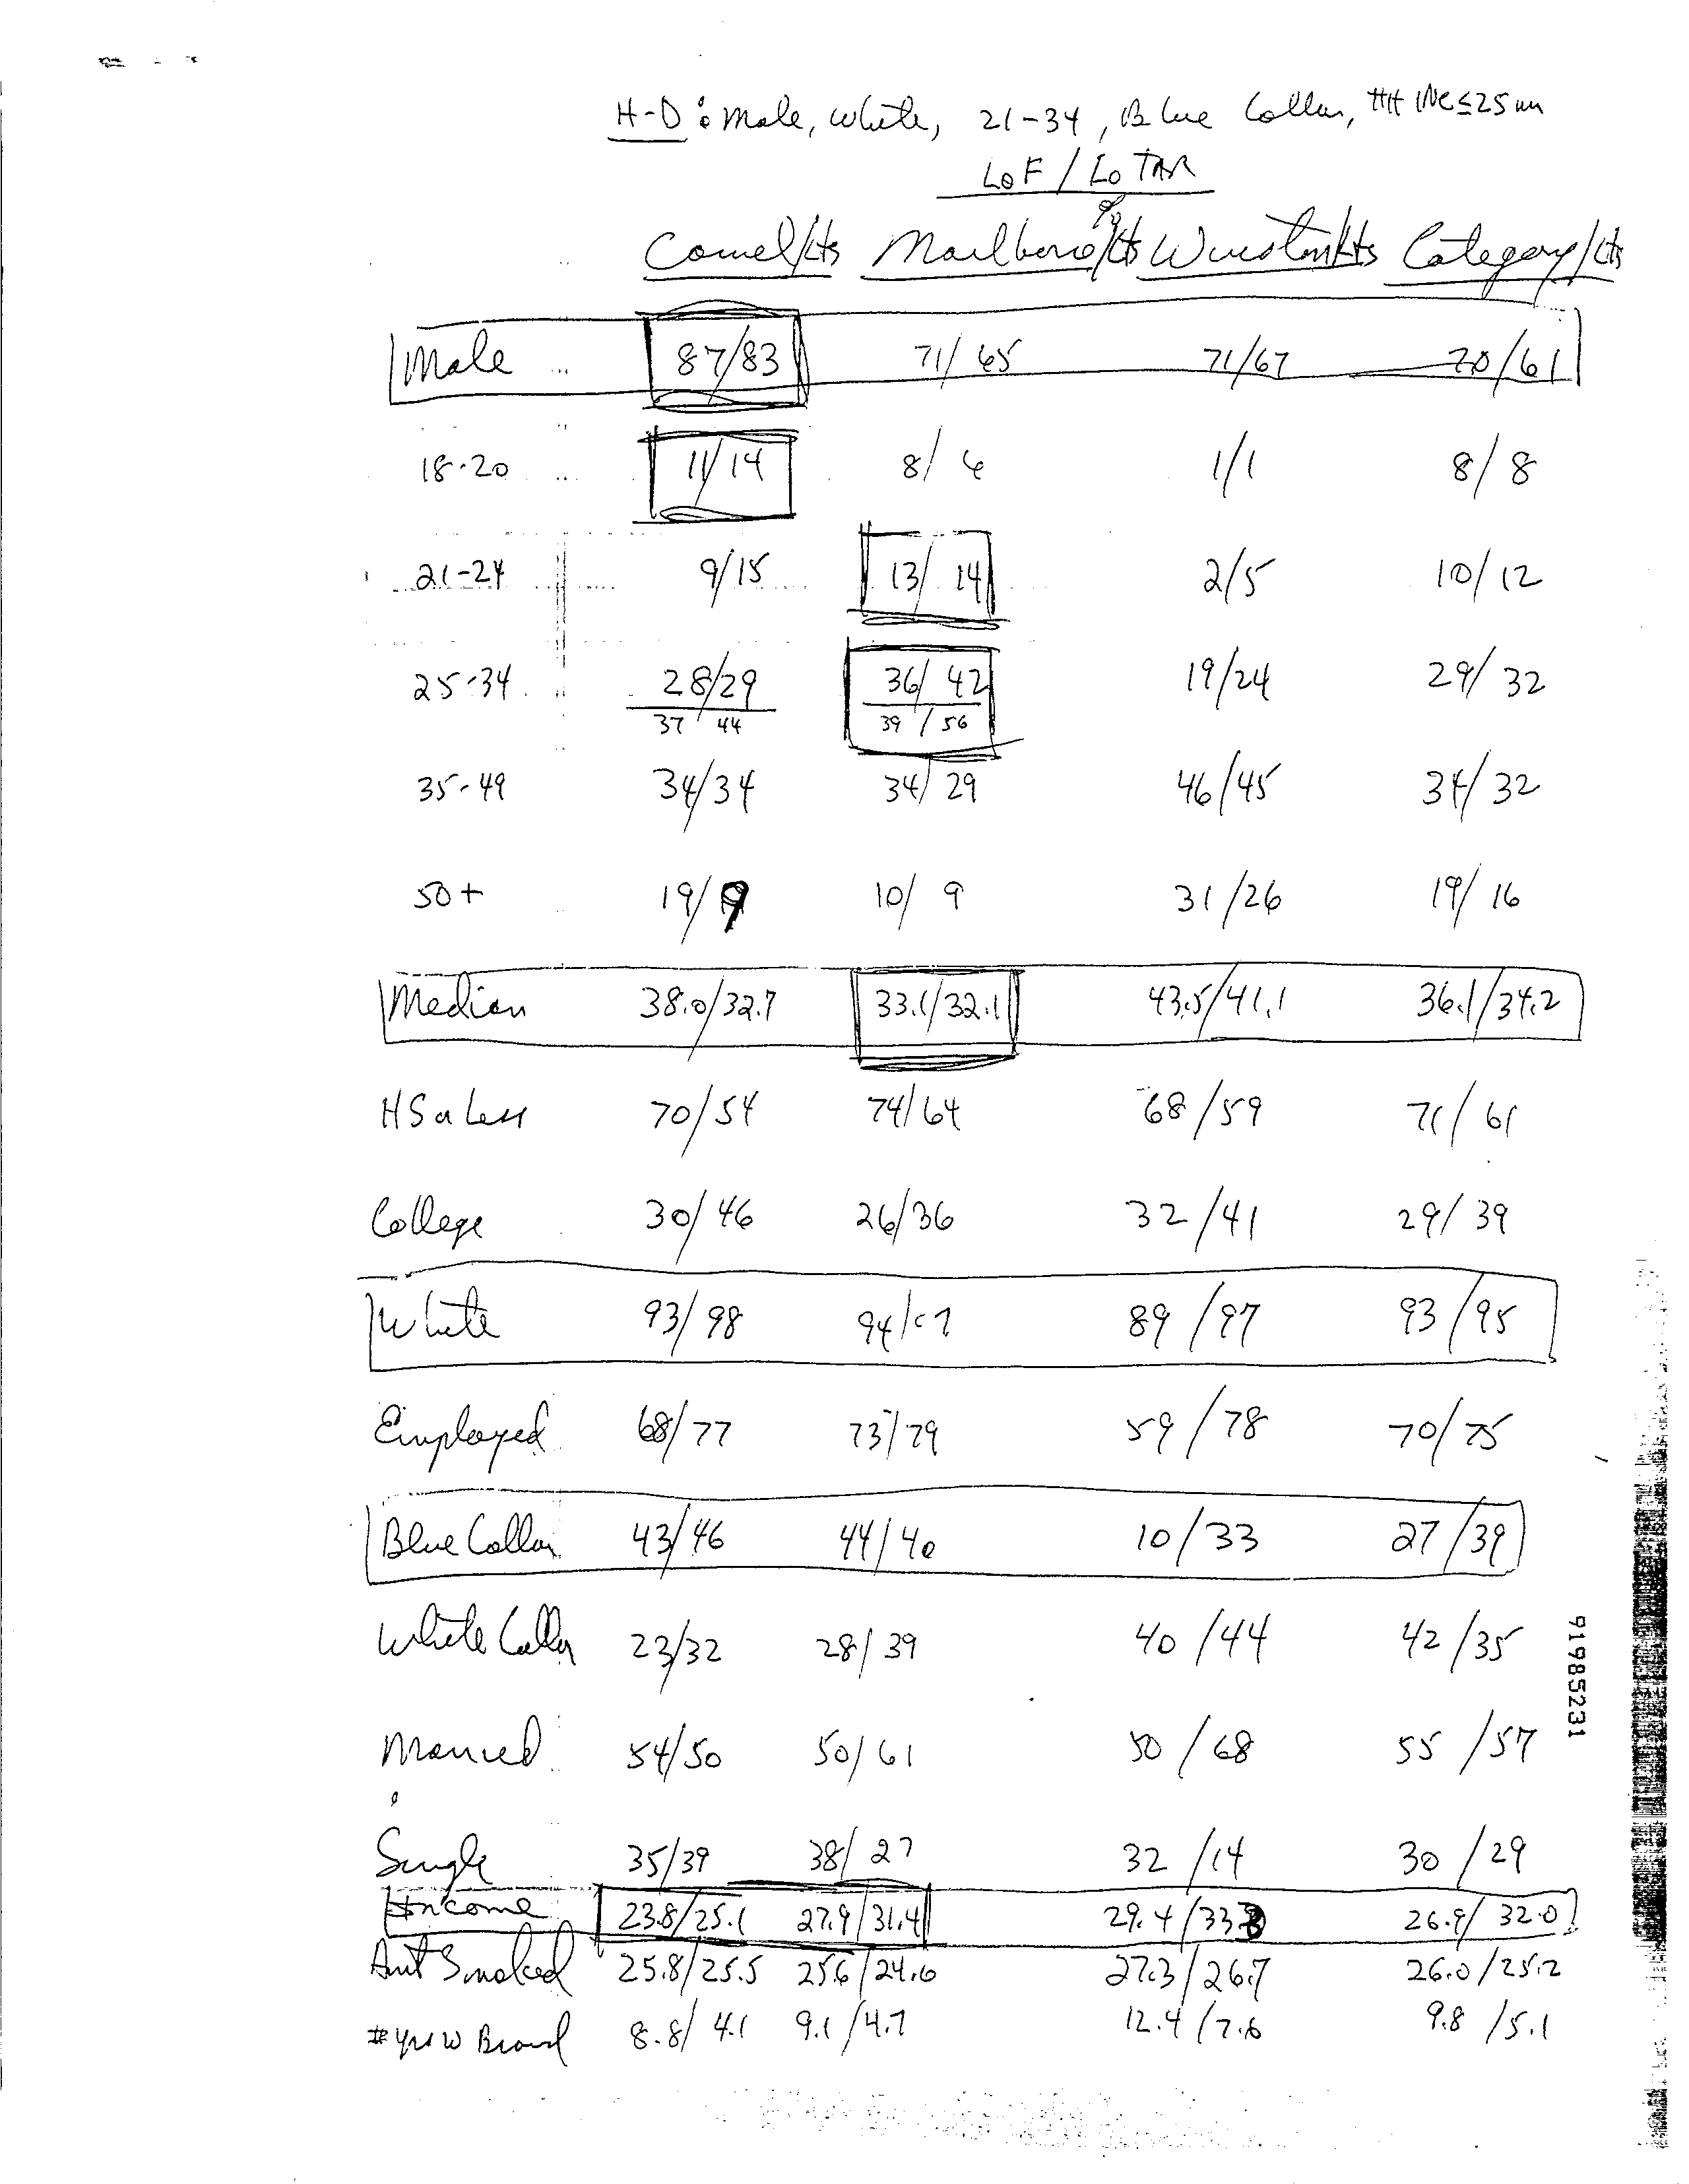 H-D: Male, White, 21-34, Blue Collar, HH INC ≤ 25 m
Lo F / Lo TAR
Camel/Lts Marlboro/Lts Winston/Lts Category/Lts
Male 87/83 71/65 71/67 70/61
18-20 11/14 8/6 1/1 8/8
21-24 9/15 13/14 2/5 10/12
25-34 28/29 36/42 19/24 29/32
37/44 39/56
35-49 34/34 34/29 46/45 34/32
50+ 19/9 10/9 31/26 19/16
Median 38.0/32.7 33.1/32.1 43.5/41.1 36.1/34.2
HS or Less 70/54 74/64 68/59 71/61
College 30/46 26/36 32/41 29/39
White 93/98 94/ 89/97 93/95
Employed 68/77 73/79 59/78 70/75
Blue Collar 43/46 44/40 10/33 27/39
White Collar 23/32 28/39 40/44 42/35
Married 54/50 50/61 50/68 55/57
Single 35/39 38/27 32/14 30/29
Income 23.8/25.1 27.9/31.4 29.4/33. 26.9/32.0
Amt Smoked 25.8/25.5 25.6/24.6 27.3/26.7 26.0/25.2
# yrs w Brand 8.8/4.1 9.1/4.7 12.4/7.6 9.8/5.1
91985231